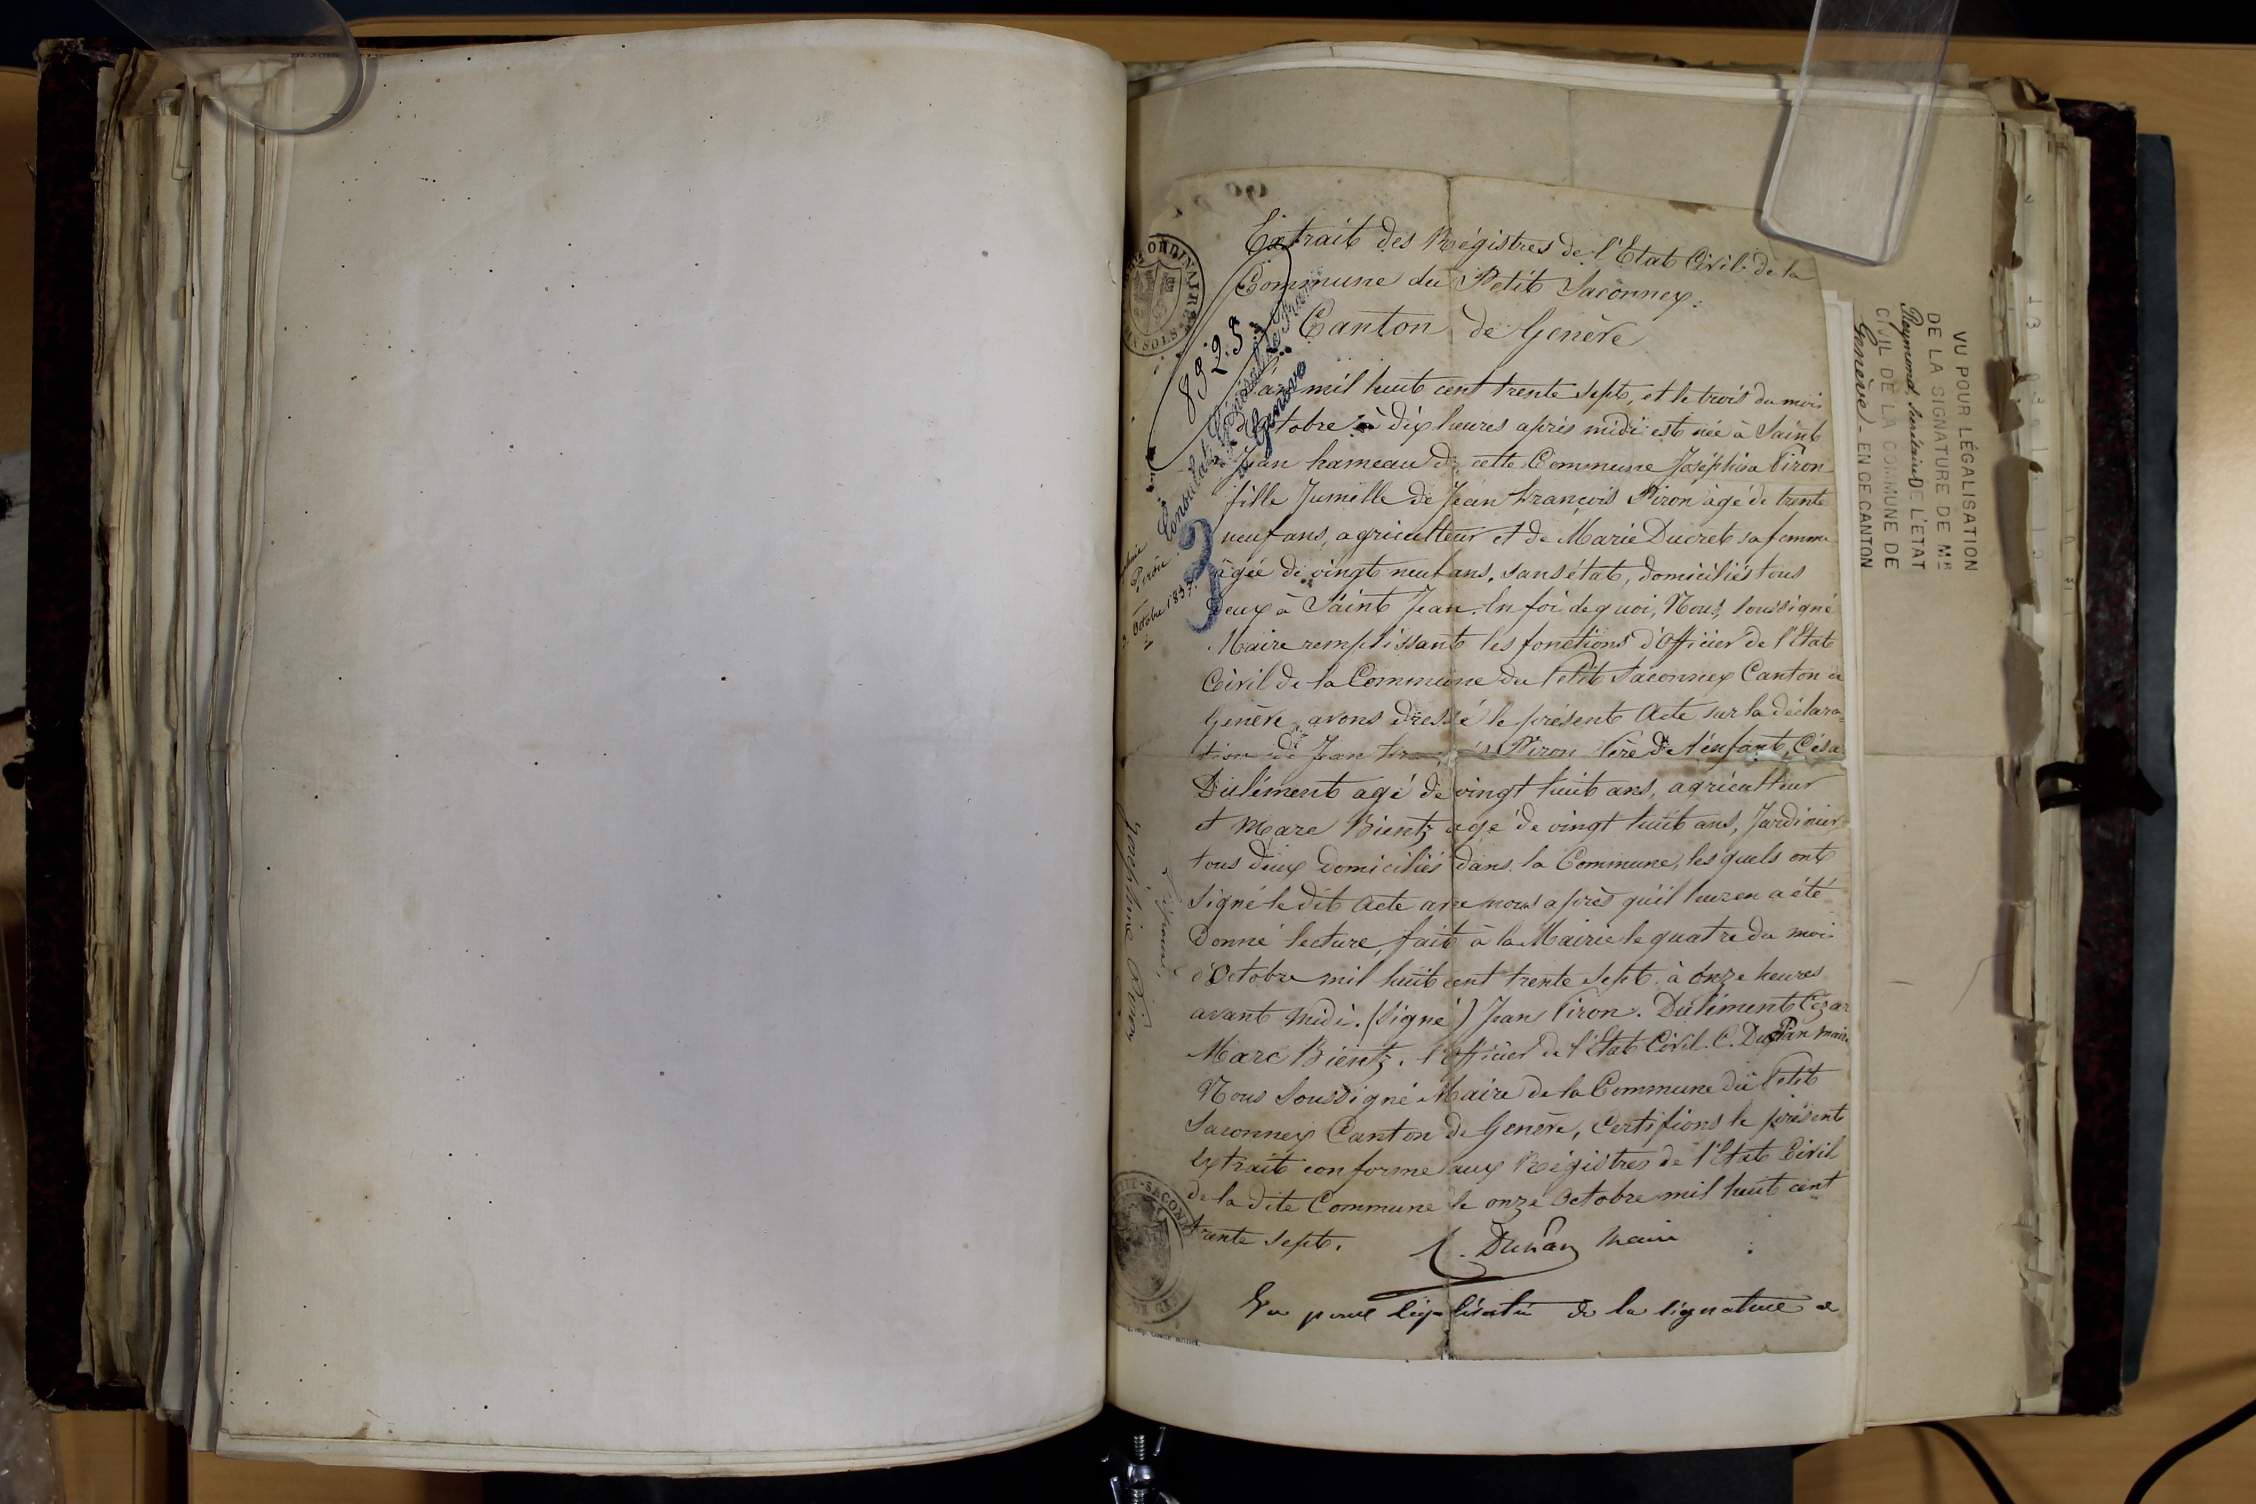 Extrait des Régistres de l'Etat Civil de la
Commune du Petit Saconnex.
Canton de Genève
8925
Consulat
à Genève
3
L'an mil huit cent trente sept, et le trois du mois
d'Octobre à dix heures après midi est née à Saint
Jean hameau de cette Commune Joséphina Piron
fille Jumelle de Jean François Piron âgé de trente
neuf ans, agriculteur et de Marie Ducret sa femme
âgée de vingt neuf ans, sans état, domiciliés tous
deux à Saint Jean. En foi de quoi, Nous, soussigné
Maire remplissant les fonctions d'Officier de l'Etat
Civil de la Commune du Petit Saconnex Canton de
Genève, avons dressé le présent Acte sur la déclara-
tion de Jean François Piron Père de l'enfant, Césa
Duliment agé de vingt huit ans, agriculteur
et Marc Bientz agé de vingt huit ans, Jardinier
tous deux domiciliés dans la Commune, les quels ont
signé le dit Acte avec nous après qu'il leur en a été
Donné lecture, fait à la Mairie le quatre du mois
d'Octobre mil huit cent trente sept à onze heures
avant midi. (Signé) Jean Piron. Duliment Cézar
Marc Bientz. l'Officier de l'Etat Civil. C. DuPan maire
Nous Soussigné Maire de la Commune du Petit
Saconnex Canton de Genève, Certifions le présent
Extrait conforme aux Régistres de l'Etat Civil
de la dite Commune le onze Octobre mil huit cent
trente sept.
C. DuPan Maire
Vu pour légalisation de la signature de
Piron
3 Octobre 1837
Joséphine Piron
VU POUR LÉGALISATION
DE LA SIGNATURE DE MR
Raymond, Secrétaire DE L'ÉTAT
CIVIL DE LA COMMUNE DE
Genève - EN CE CANTON